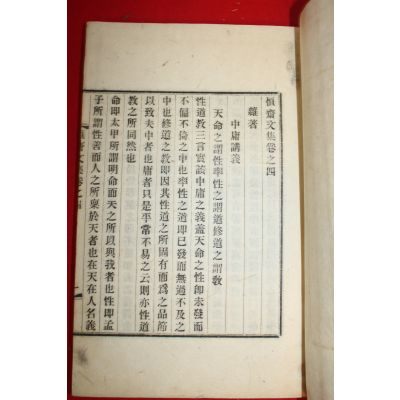 愼齋文集卷之四
雜著
中庸講義
天命之謂性率性之謂道修道之謂敎
性道敎三言實該中庸之義盖天命之性卽未發而
不偏不倚之中也率性之道卽已發而無過不及之
中也修道之敎卽因其性道之所固有而爲之品節
以致夫中者也庸者只是平常不易之云則亦性道
敎之所同然也
命卽太甲所謂明命而天之所以與我者也性卽孟
子所謂性善而人之所稟於天者也在天在人名義
愼齋文集卷之四